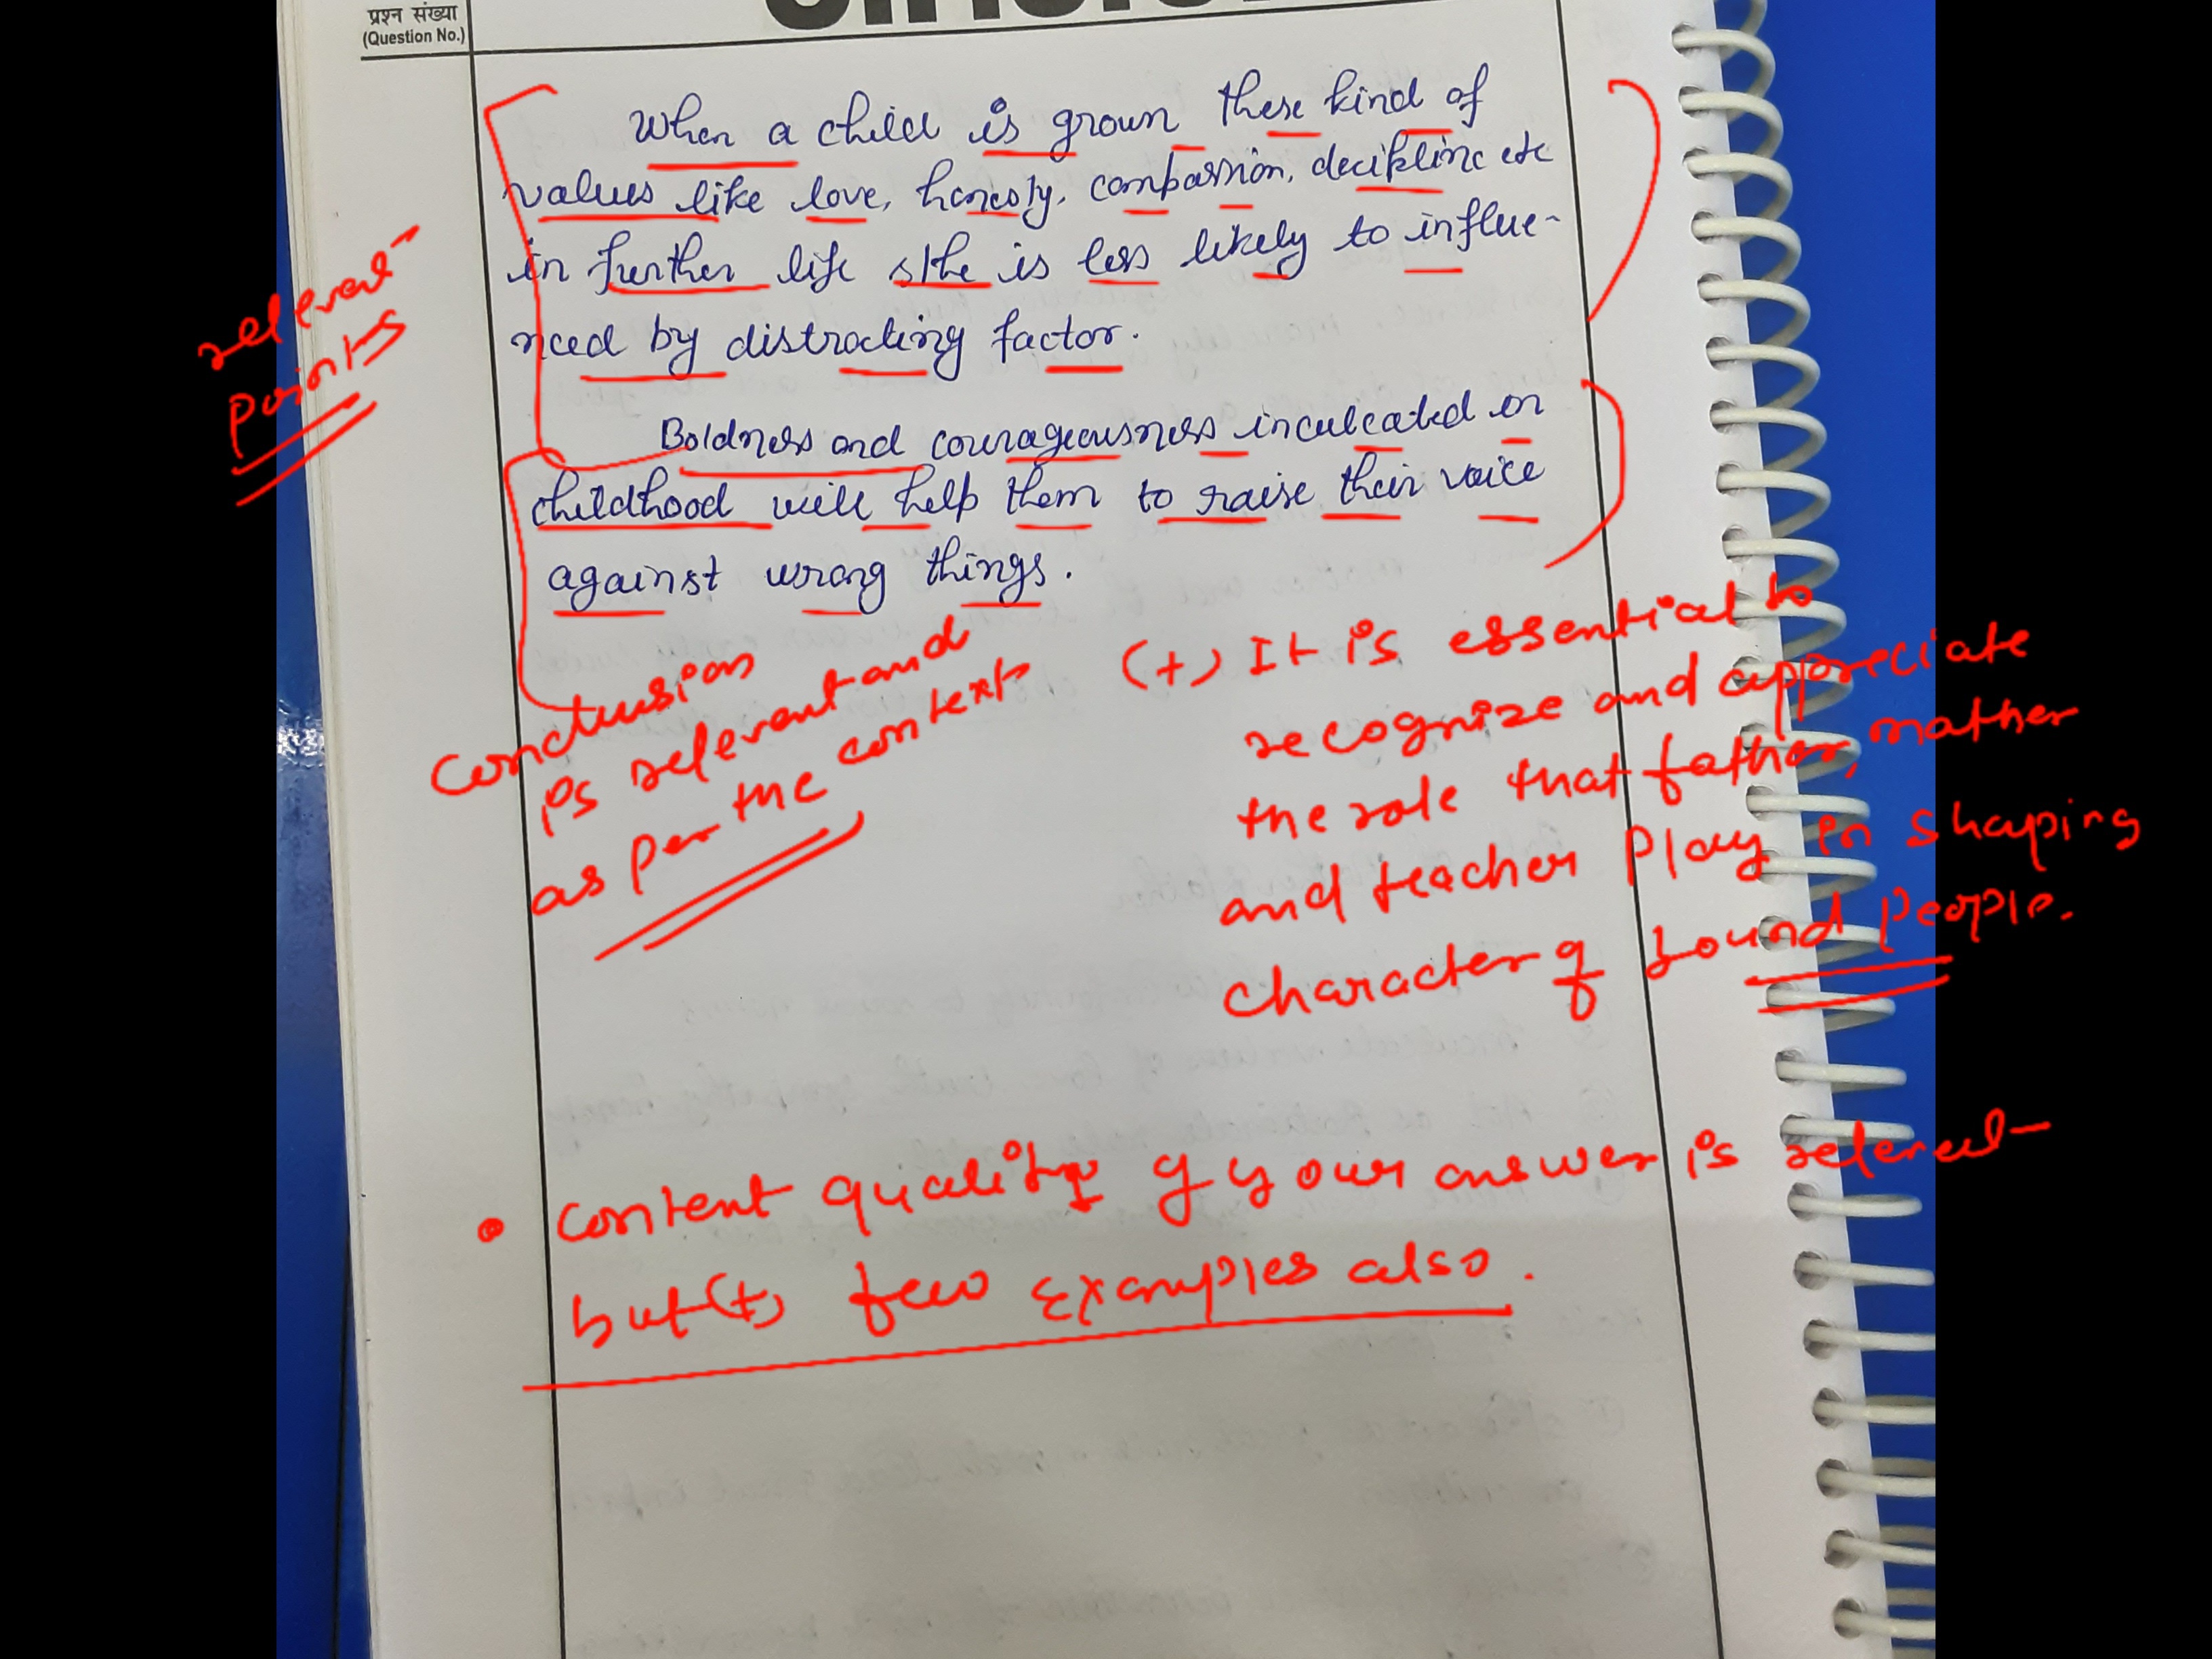 प्रश्न संख्या
(Question No.)
When a child is grown these kind of
values like love, honesty, compassion, decipline etc
in further life s/he is less likely to influe-
nced by distracting factor.
Boldness and courageousness inculcated in
childhood will help them to raise their voice
against wrong things.
relevant
points
conclusion
is relevant and
as per the context
(+) It is essential to
recognize and appreciate
the role that father, mother
and teacher play in shaping
character of sound people.
• content quality of your answer is relevent
but (+) few examples also.